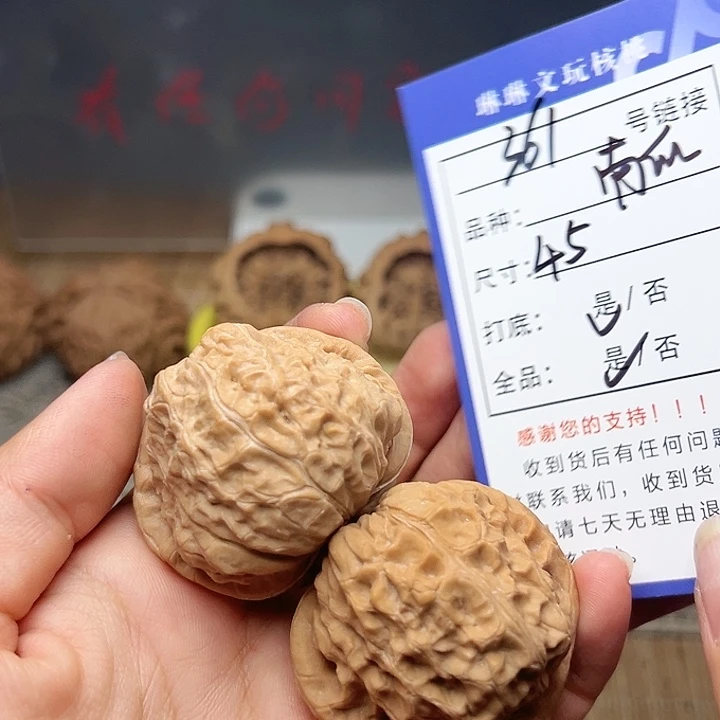 琳琳文玩核桃
361 号链接
品种：南瓜
尺寸：45
打底：是/否
全品：是/否
感谢您的支持！！！
收到货后有任何问题
联系我们，收到货
请七天无理由退